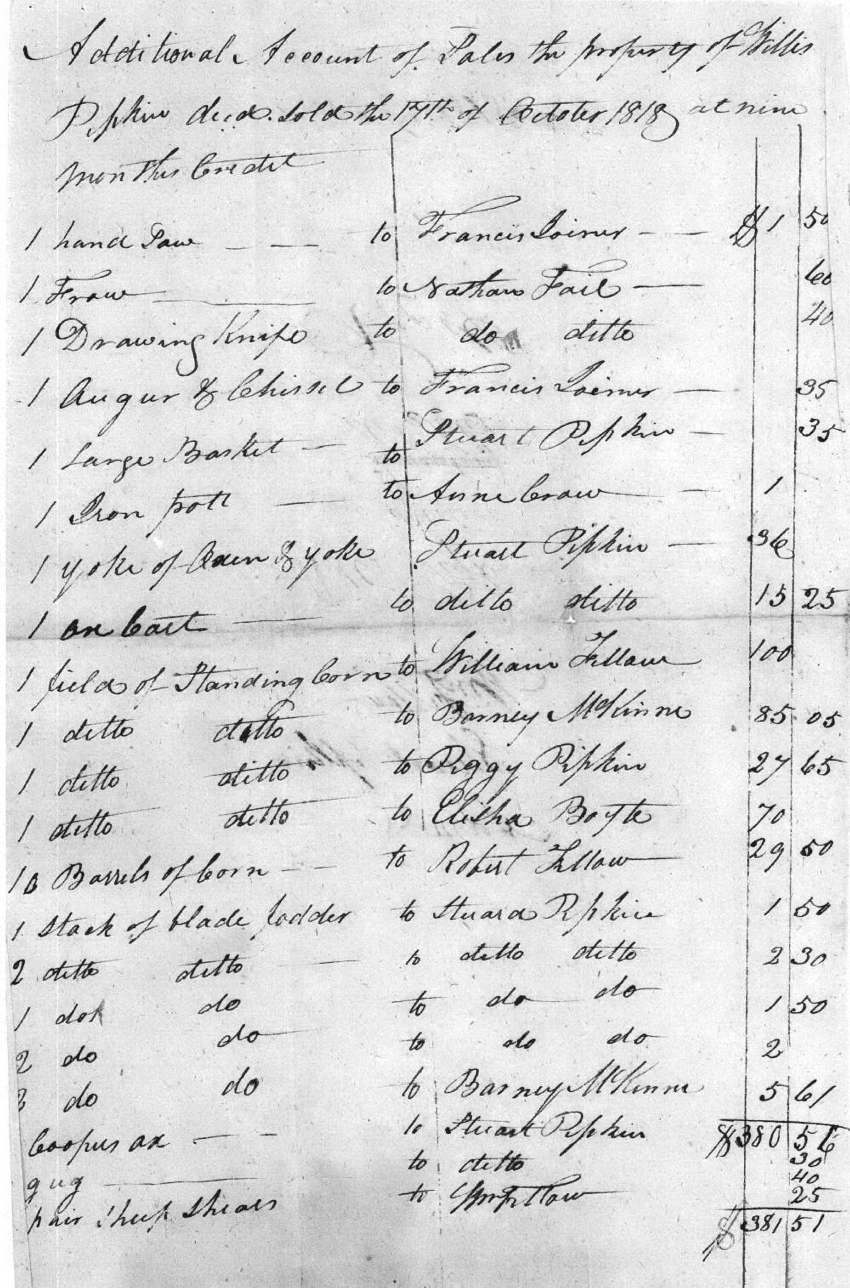 Additional Account of Sales the property of Willis
Pipkin decd. sold the 17th of October 1818 at nine
months Credit
1 hand Saw to Francis Joiner $ 1 50
1 Frow to Nathan Fail 60
1 Drawing Knife to do ditto 40
1 Augur & Chissel to Francis Joiner 35
1 Large Basket to Stuart Pipkin 35
1 Iron pott to Anne Craw 1
1 yoke of Oxen & yoke Stuart Pipkin 36
1 ox Cart to ditto ditto 15 25
1 field of Standing Corn to William Fellow 100
1 ditto ditto to Barney McKinne 85 05
1 ditto ditto to Peggy Pipkin 27 65
1 ditto ditto to Elisha Boyte 70
10 Barrels of Corn to Robert Fellow 29 50
1 Stack of blade fodder to Stuard Pipkin 1 50
2 ditto ditto to ditto ditto 2 30
1 do do to do do 1 50
2 do do to do do 2
3 do do to Barney McKinne 5 61
Coopus ax to Stuart Pipkin $ 380 56
30
gug to ditto 40
pair Sheep Shears to 25
$ 381 51